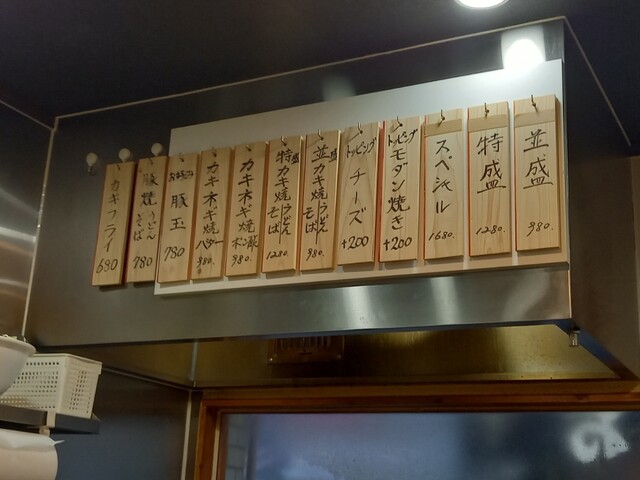 並盛
980.
特盛
1280.
スペシャル
1680.
トッピング
モダン焼き
+200
トッピング
チーズ
+200
並盛
カキ焼
うどん
そば
980.
特盛
カキ焼
うどん
そば
1280.
カキネギ焼
ポン酢
980.
カキネギ焼
バター
980.
豚玉
780
豚焼
うどん
そば
780
カキフライ
680